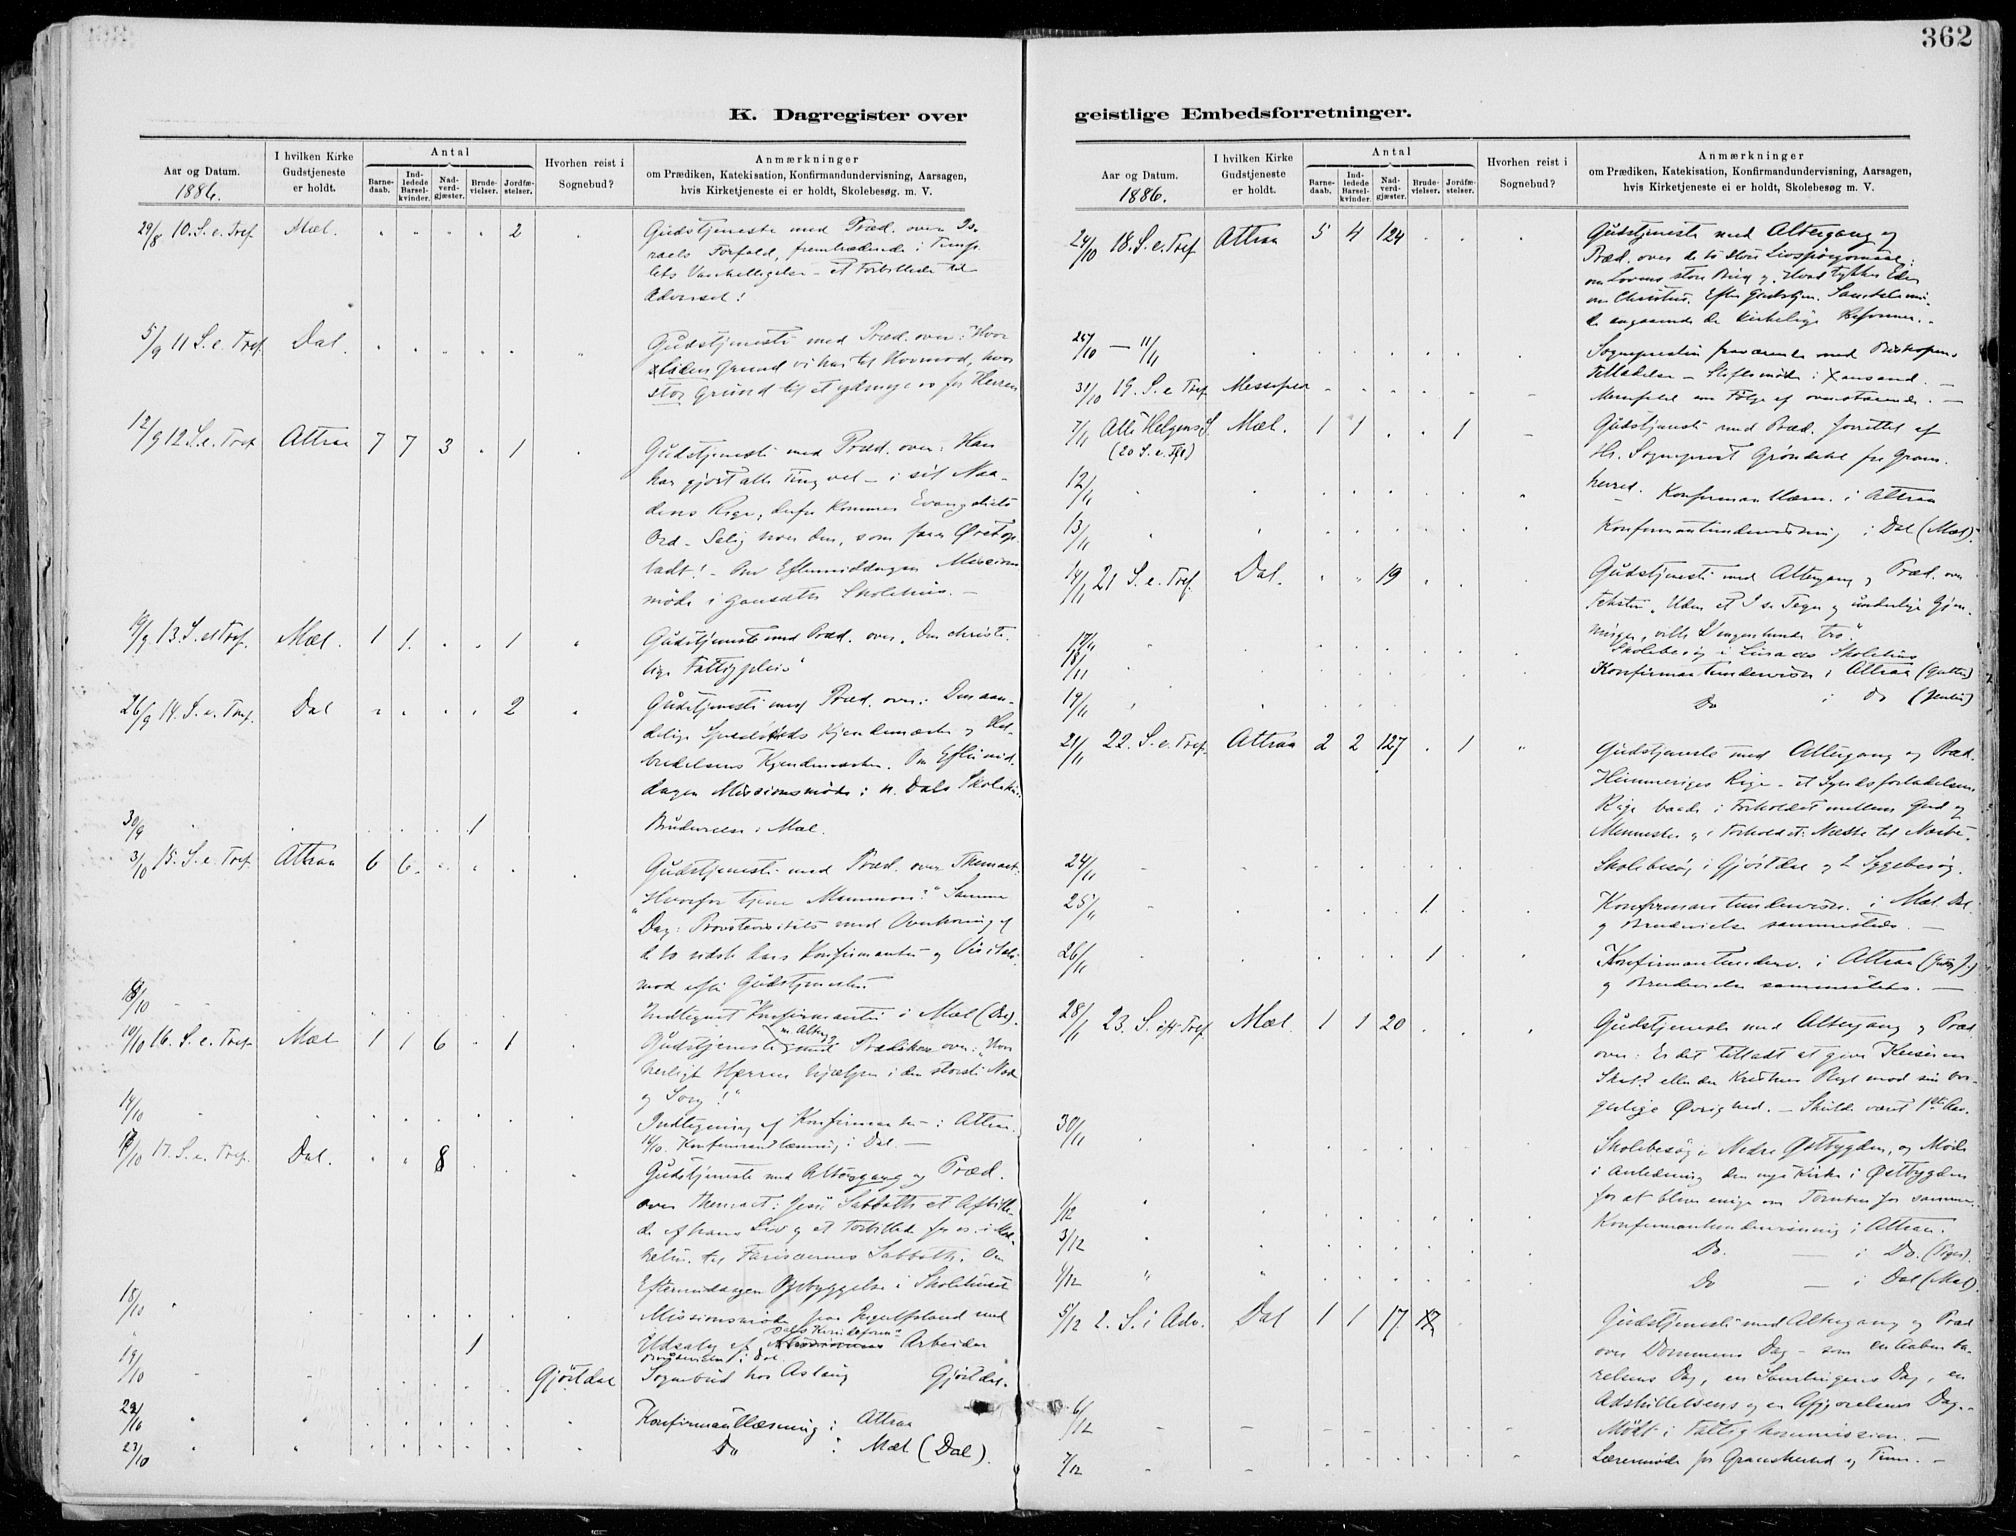 362
K. Dagregister over
geistlige Embedsforretninger.
Aar og Datum.
1886.
I hvilken Kirke
Gudstjeneste
er holdt.
Antal
Barne-
daab.
Ind-
ledede
Barsel-
kvinder.
Nad-
verd-
gjæster.
Brude-
vielser.
Jordfæ-
stelser.
Hvorhen reist i
Sognebud?
Anmærkninger
om Prædiken, Katekisation, Konfirmandundervisning, Aarsagen,
hvis Kirketjeneste ei er holdt, Skolebesøg. m. V.
29/8 10. S. e. Tref. Mæl. 2 Gudstjeneste med Præd. over Is-
raels Forfald, fremtrædende i Temp-
lets Vanhelligelse - et Forbillede til
Advarsel!
5/9 11 S. e. Tref. Dal. Gudstjeneste med Præd. over: Hvor
liden Grund vi har til Hovmod, hvor
stor Grund til at ydmyge os for Herren
12/9 12 S. e. Tref. Attraa 7 7 3 1 Gudstjeneste med Præd. over: Han
har gjort alle Ting vel - i sit Naa-
dens Rige, derfor kommer Evangeliets
Ord - Salig hver den, som faar Øret op-
ladt! - Om Eftermiddagen Missions
møde i Skolehus. -
19/9 13. S. e. Tref. Mæl. 1 1. 1 Gudstjeneste med Præd. over "Den christe-
lige Fattigpleie"
26/9 14. S. e. Tref. Dal 2 Gudstjeneste med Præd. over: Den aan-
delige Spedalskheds Kjendemærke og Hel-
bredelsens Kjendemærke. Om Eftermid-
dagen Missionsmøde i n. Dals Skolehus
30/9 1 Brudevielse i Mæl.
3/10 15. S. e. Tref. Attraa 6 6. Gudstjeneste med Præd. over Themaet:
"Hvorfor tjene Mammon?" Samme
Dag: Provstevisitats med Overhøring af
de to sidste Aars Konfirmanter og Visitats-
mød efter Gudstjenesten
/10 Indtegnet Konfirmanter i Mæl (Dal).
10/10 16. S. e. Tref. Mæl 1 1 6 1 Gudstjeneste m. Alterg. med Prædiken over: "Hvor
herligt Herren hjælper i den største Nød
og Sorg!"
14/10 Indtegning af Konfirmanter i Attraa.
16/10. Konfirmandlæsning i Dal. -
17/10 17. S. e. Tref. Dal. 8 Gudstjeneste med Altergang og Præd.
over Themaet: Jesu Sabbath et Afbille-
de af hans Liv og et Forbillede for os i Mod-
sætn. til Farisæernes Sabbath. Om
Eftermiddagen Opbyggelse i Skolehuset
18/10 Missionsmøde paa Ingulfsland med
1 Udsalg af Dals Kvindeforen. Arbeider
Brudevielse i Dal.
19/10 Gjøstdal Sognebud hos Aslaug Gjøstdal.
22/10 Konfirmantlæsning i Attraa
23/10 Do i Mæl (Dal).
Aar og Datum.
1886.
I hvilken Kirke
Gudstjeneste
er holdt.
Antal
Barne-
daab.
Ind-
ledede
Barsel-
kvinder.
Nad-
verd-
gjæster.
Brude-
vielser.
Jordfæ-
stelser.
Hvorhen reist i
Sognebud?
Anmærkninger
om Prædiken, Katekisation, Konfirmandundervisning, Aarsagen,
hvis Kirketjeneste ei er holdt, Skolebesøg m. V.
24/10 18. S. e. Tref Attraa 5 4 124 Gudstjeneste med Altergang og
Præd. over de to store Livsspørgsmaal:
om Lovens store Bud og Hvad tykkes Eder
om Christus. Efter Gudstjen. Samtalemø-
de angaaende de kirkelige Reformer. -
25/10 - 11/11 Sognepresten fraværende med Biskopens
Tilladelse - Stiftsmøde i Xansand. -
31/10 19. S. e. Tref Messefald Messefald en Følge af ovenstaaende. -
7/11 Alle Helgens S. Mæl. 1 1 1 Gudstjeneste med Præd. forrettet af
(20 S. e. Tref) Hr. Sogneprest Grøndahl fra Grans-
herred.
12/11 Konfirmantlæsn. i Attraa
13/11 Konfirmantundervisning i Dal (Mæl).
14/11 21 S. e. Tref. Dal. 19 Gudstjeneste med Altergang og Præd. over
Teksten "Uden at I se Tegn og underlige Gjer-
ninger, ville I ingenlunde tro."
17/11 Skolebesøg i Skolehus
18/11 Konfirmantundervisn. i Attraa (Gutter)
19/11 Do i Do (Jenter)
21/11 22. S. e. Tref. Attraa 2 2 127 1 Gudstjeneste med Altergang og Præd.
Himmeriges Rige - et Syndsforladelsens
Rige baade i Forholdet mellem Gud og
Mennesker og i Forholdet: Næste til Næste -
24/11 Skolebesøg i Gjøstdal og 2 Sygebesøg.
25/11 1 Konfirmantundervisn. i Mæl Dal
og Brudevielse sammesteds. -
26/11 1 Konfirmantunderv. i Attraa
og Brudevielse sammesteds. -
28/11 23. S. eft. Tref. Mæl. 1 1 20 Gudstjeneste med Altergang og Præd
over: Er det tilladt at give Keiseren
Skat? eller den Kristnes Pligt mod sin bor-
gerlige Øvrighed. - Skulde været 1ste Adv.
30/11 Skolebesøg i Nedre Østbygden, og Møde
i Anledning den nye Kirke i Østbygden
for at blive enige om Tomten for samme.
1/12 Konfirmantundervisning i Attraa.
3/12 Do. - i Do. (Piger).
4/12 Do - i Dal (Mæl).
5/12 2. S. i Adv. Dal 1 1 17 Gudstjeneste med Altergang og Præd
over Dommens Dag - som en Aabenba-
relsens Dag, en Samlingens Dag, en
Adskillelsens og en Afgjørelsens Dag. -
6/12 Mødt i Fattigkommission. -
7/12 Læremøde for Gransherred og Tinn. -